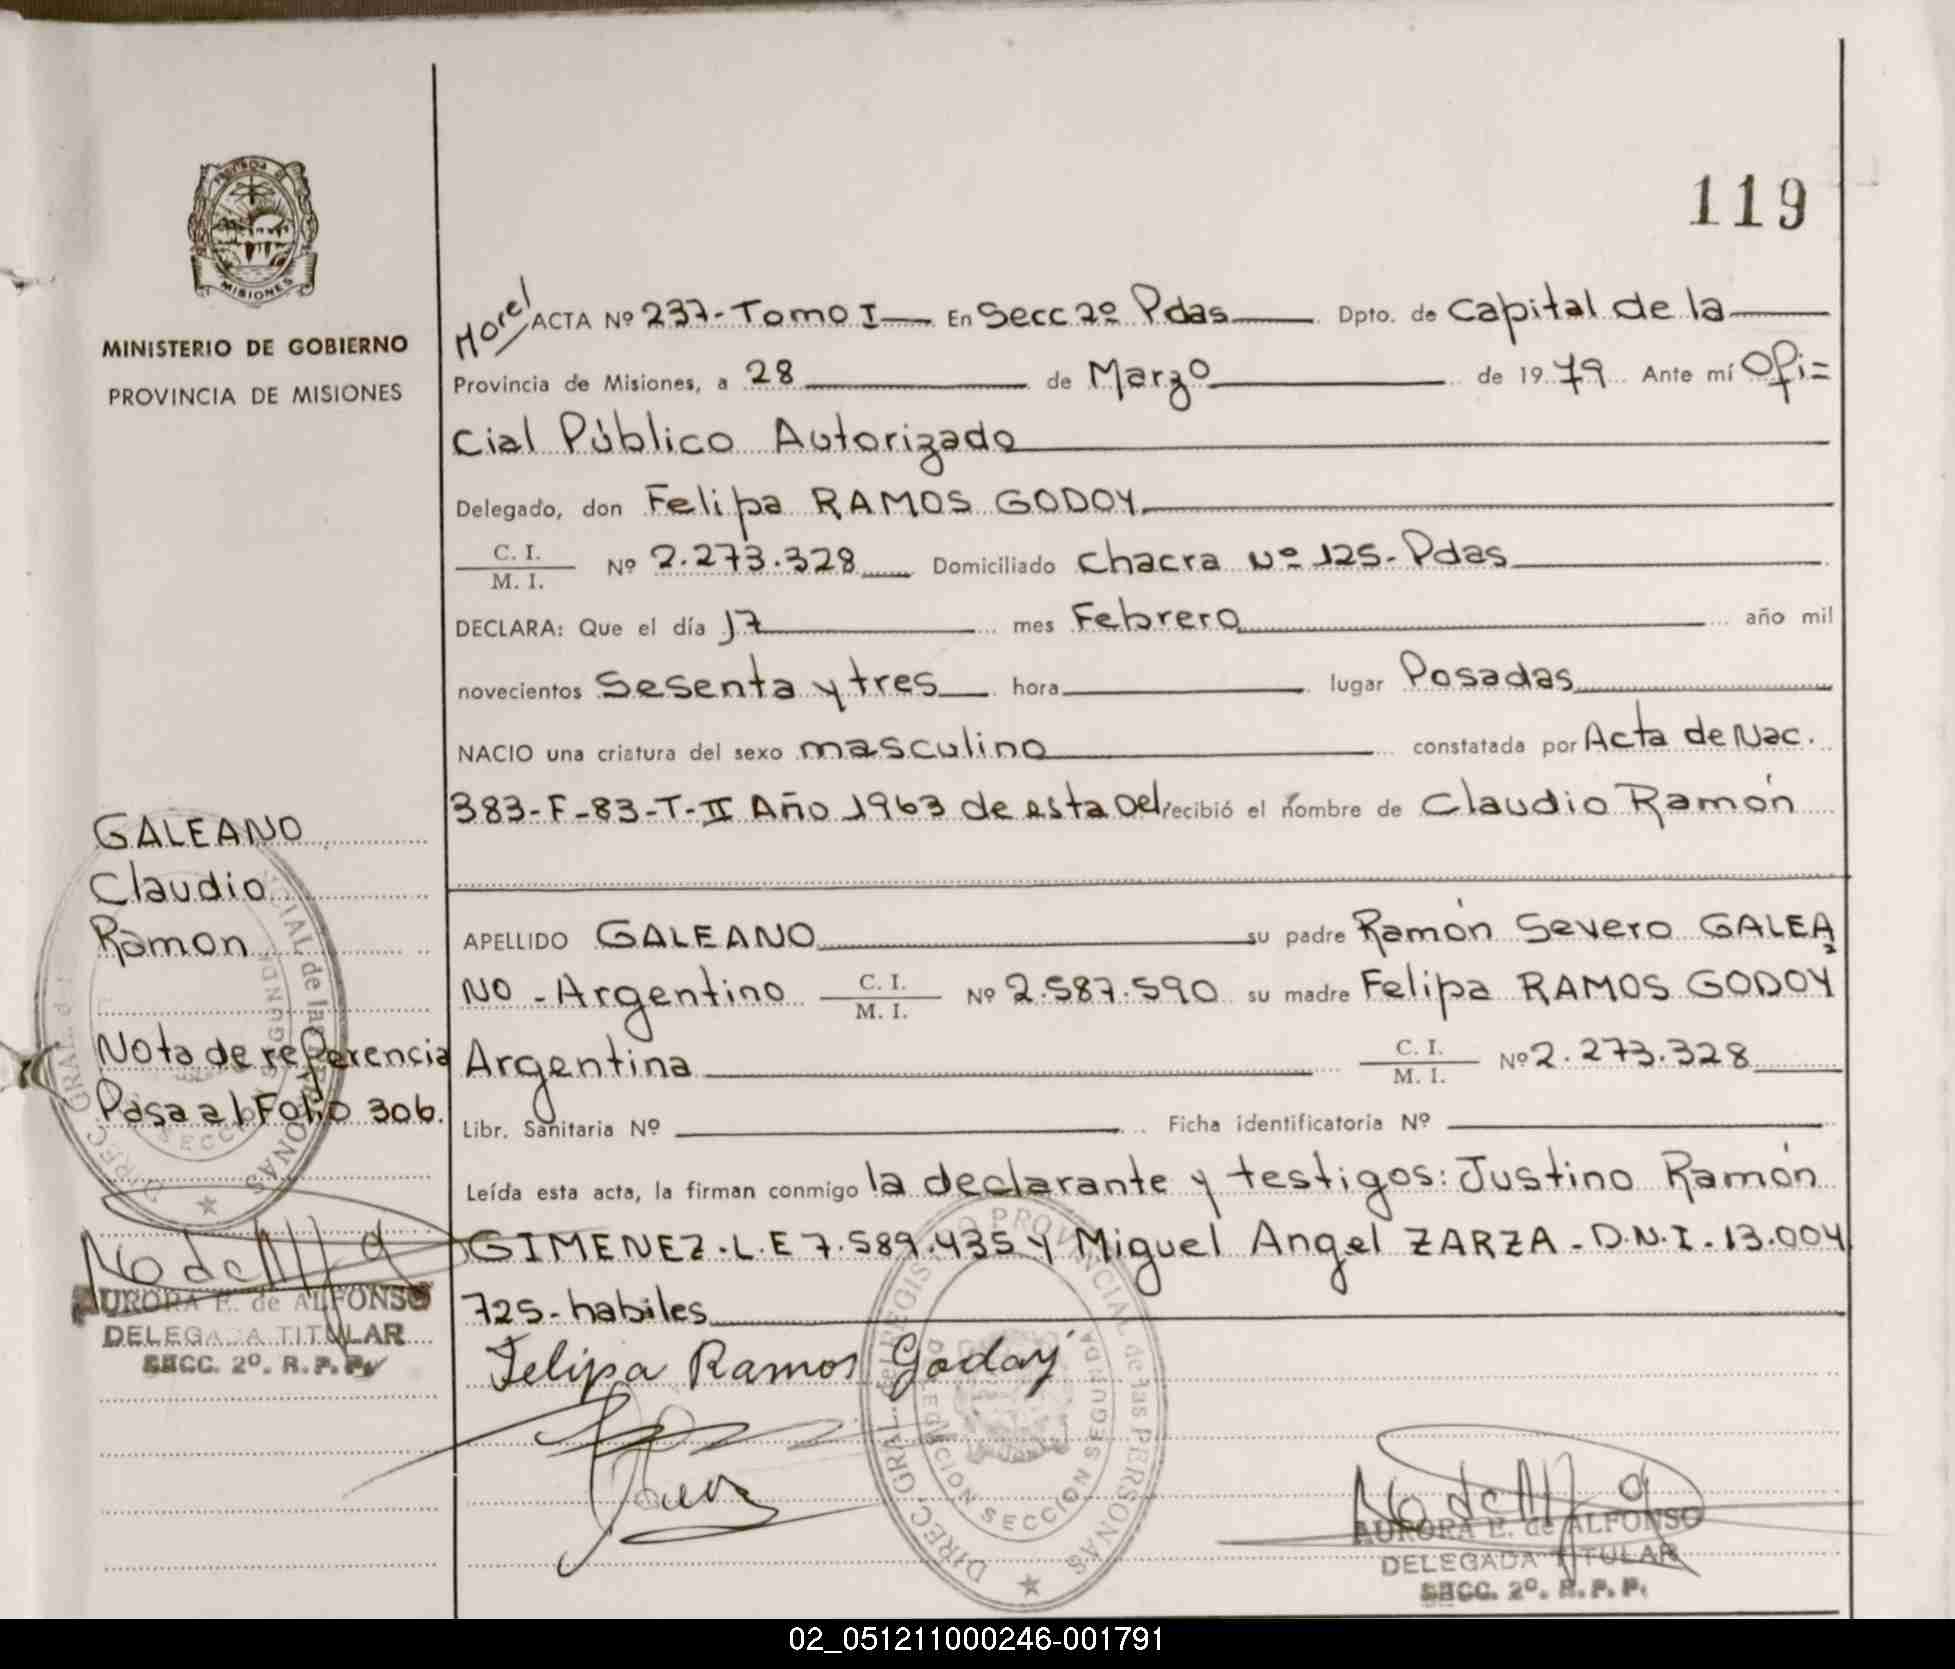 119
MISIONES
MINISTERIO DE GOBIERNO
PROVINCIA DE MISIONES
Morel ACTA Nº 237-Tomo I En Secc 2º Pdas Dpto. de Capital de la
Provincia de Misiones, a 28 de Marzo de 1979 Ante mí Ofi=
cial Público Autorizado
Delegado, don Felipa RAMOS GODOY
C. I. / M. I. Nº 2.273.328 Domiciliado Chacra Nº 125-Pdas
DECLARA: Que el día 17 mes Febrero año mil
novecientos Sesenta y tres hora lugar Posadas
NACIO una criatura del sexo masculino constatada por Acta de Nac.
383-F-83-T-II Año 1963 de esta Del recibió el nombre de Claudio Ramón
APELLIDO GALEANO su padre Ramón Severo GALEA
NO - Argentino C. I. / M. I. Nº 2.587.590 su madre Felipa RAMOS GODOY
Argentina C. I. / M. I. Nº 2.273.328
Libr. Sanitaria Nº Ficha identificatoria Nº
Leída esta acta, la firman conmigo la declarante y testigos: Justino Ramón
GIMENEZ-L.E 7.589.435 y Miguel Angel ZARZA-D.N.I-13.004
725-habiles
Felipa Ramos Godoy
DIREC. GRAL. del REGISTRO PROVINCIAL de las PERSONAS
DELEGACION SECCION SEGUNDA
AURORA E. de ALFONSO
DELEGADA TITULAR
SECC. 2º. R.P.P.
GALEANO
Claudio
Ramon
Nota de referencia
Pasa al Folio 306.
AURORA E. de ALFONSO
DELEGADA TITULAR
SECC. 2º. R.P.P.
02_051211000246-001791